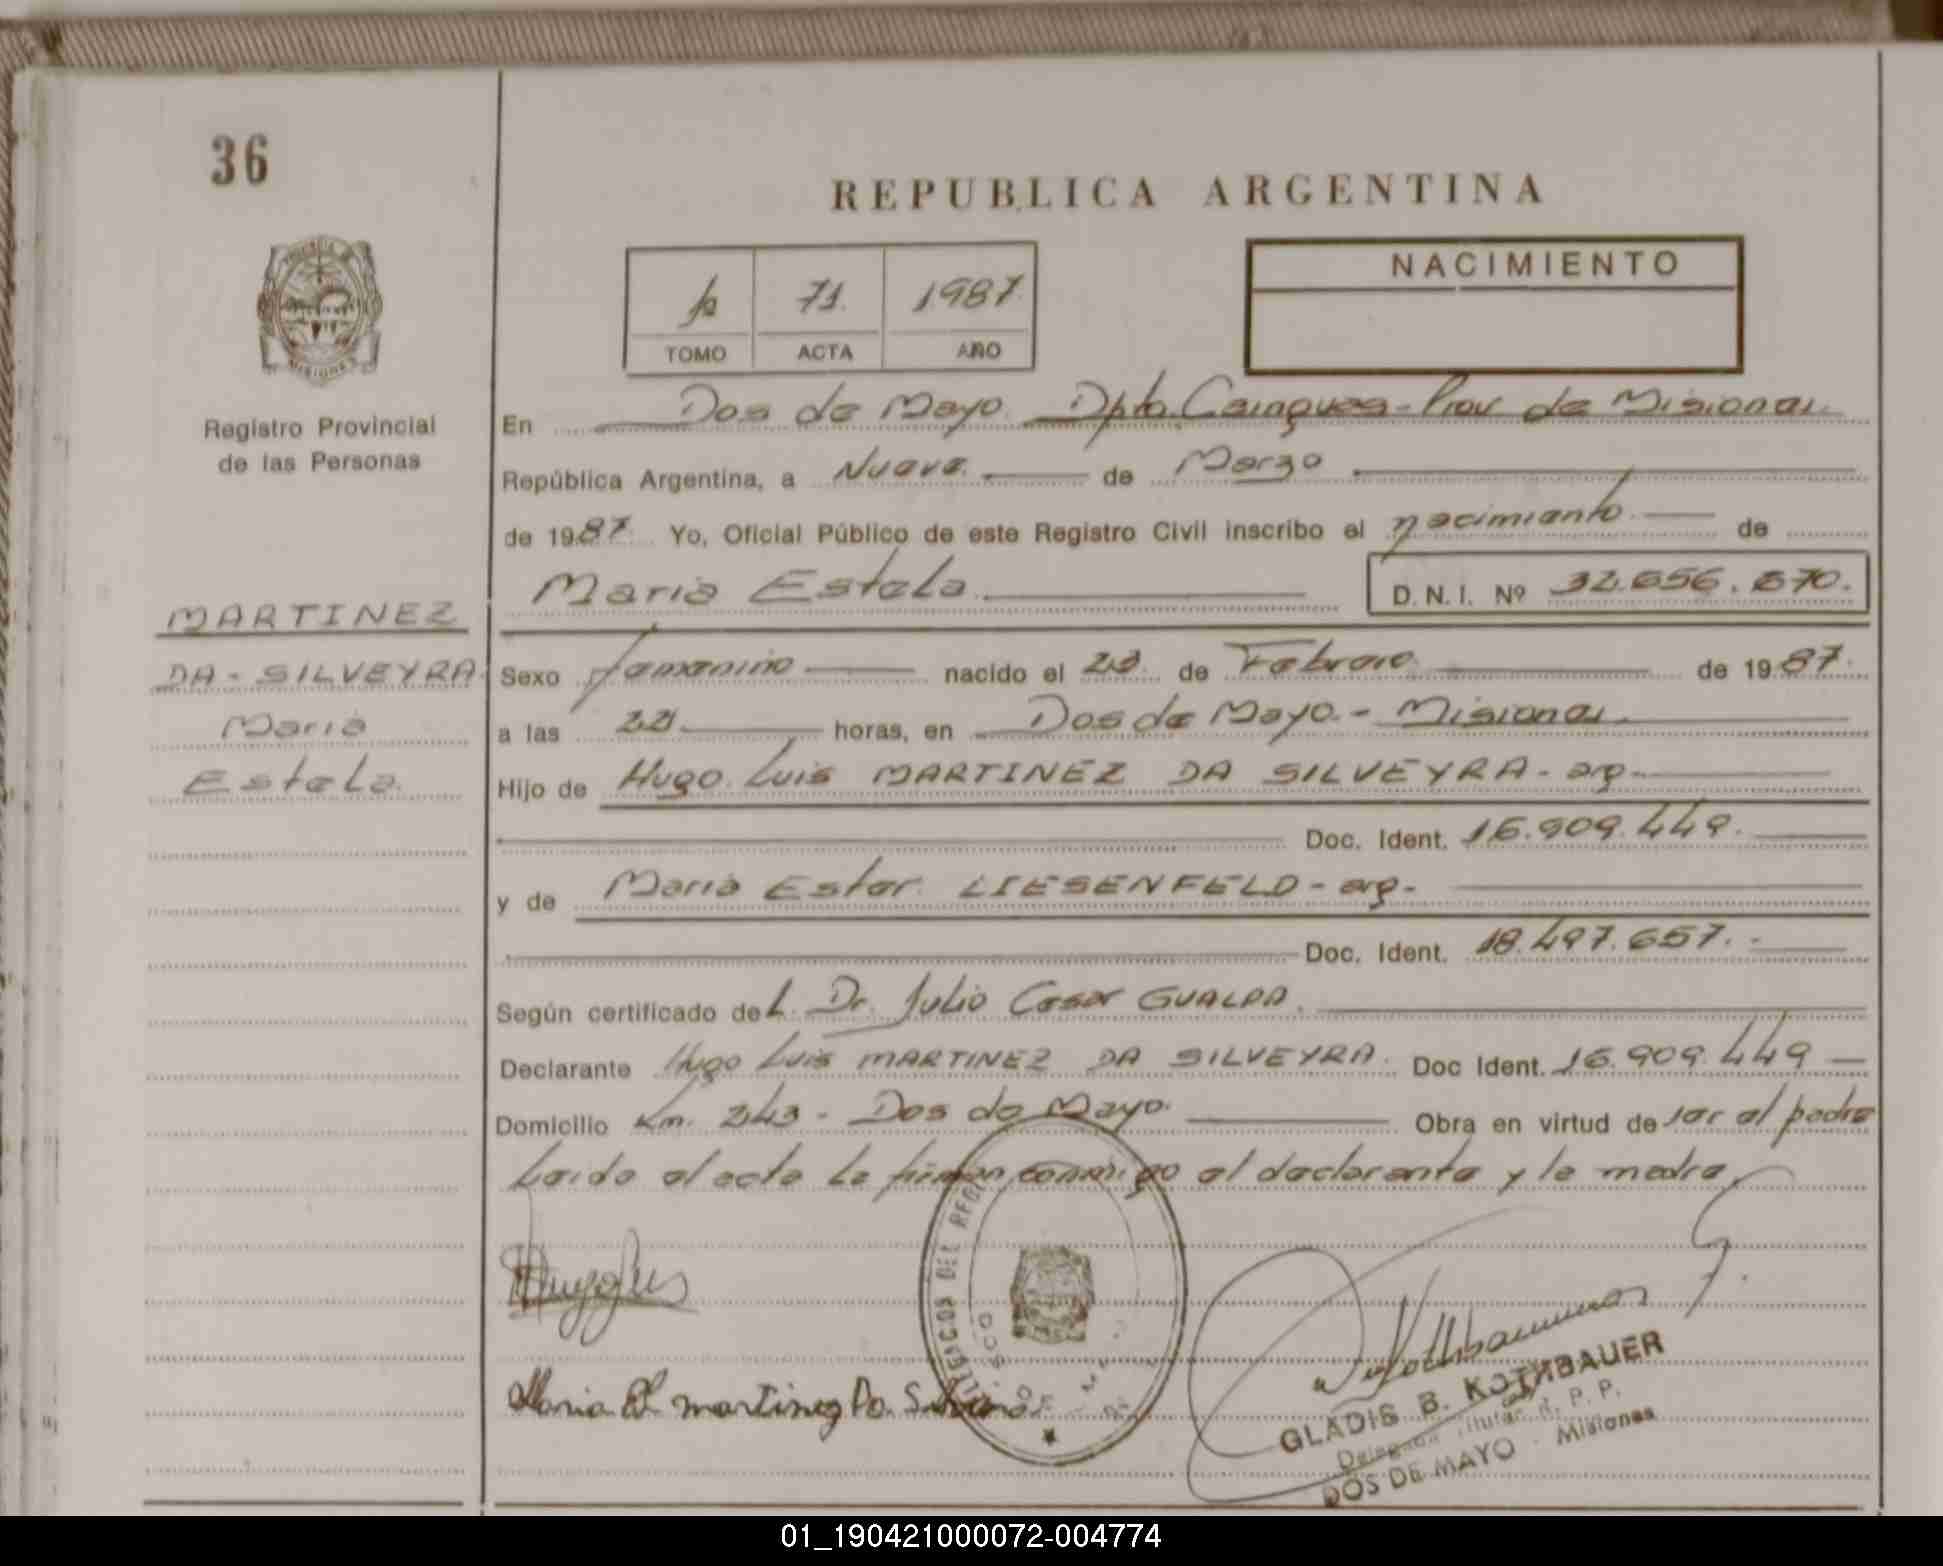 36
REPUBLICA ARGENTINA
NACIMIENTO
1º 71. 1987.
TOMO ACTA AÑO
Registro Provincial
de las Personas
MISIONES
En Dos de Mayo. Dpto. Cainguas - Prov de Misiones.
República Argentina, a Nueve. de Marzo
de 1987. Yo, Oficial Público de este Registro Civil inscribo el nacimiento de
Maria Estela. D.N.I. Nº 32.656.670.
MARTINEZ
DA-SILVEYRA
Maria
Estela.
Sexo femenino nacido el de Febrero de 1987.
a las horas, en Dos de Mayo. - Misiones.
Hijo de Hugo Luis MARTINEZ DA SILVEYRA - arg.
Doc. Ident. 16.909.449.
y de Maria Ester LIESENFELD - arg.
Doc. Ident. 18.497.657.
Según certificado del Dr. Julio Cesar GUALDA.
Declarante Hugo Luis MARTINEZ DA SILVEYRA. Doc Ident. 16.909.449
Domicilio Km. 243 - Dos de Mayo. Obra en virtud de ser el padre
Leido el acta la firman conmigo el declarante y la madre.
Hugo Luis
Maria E. martinez Da
GLADIS B. KOTHBAUER
Delegada Titular R. P. P.
DOS DE MAYO - Misiones
01_190421000072-004774